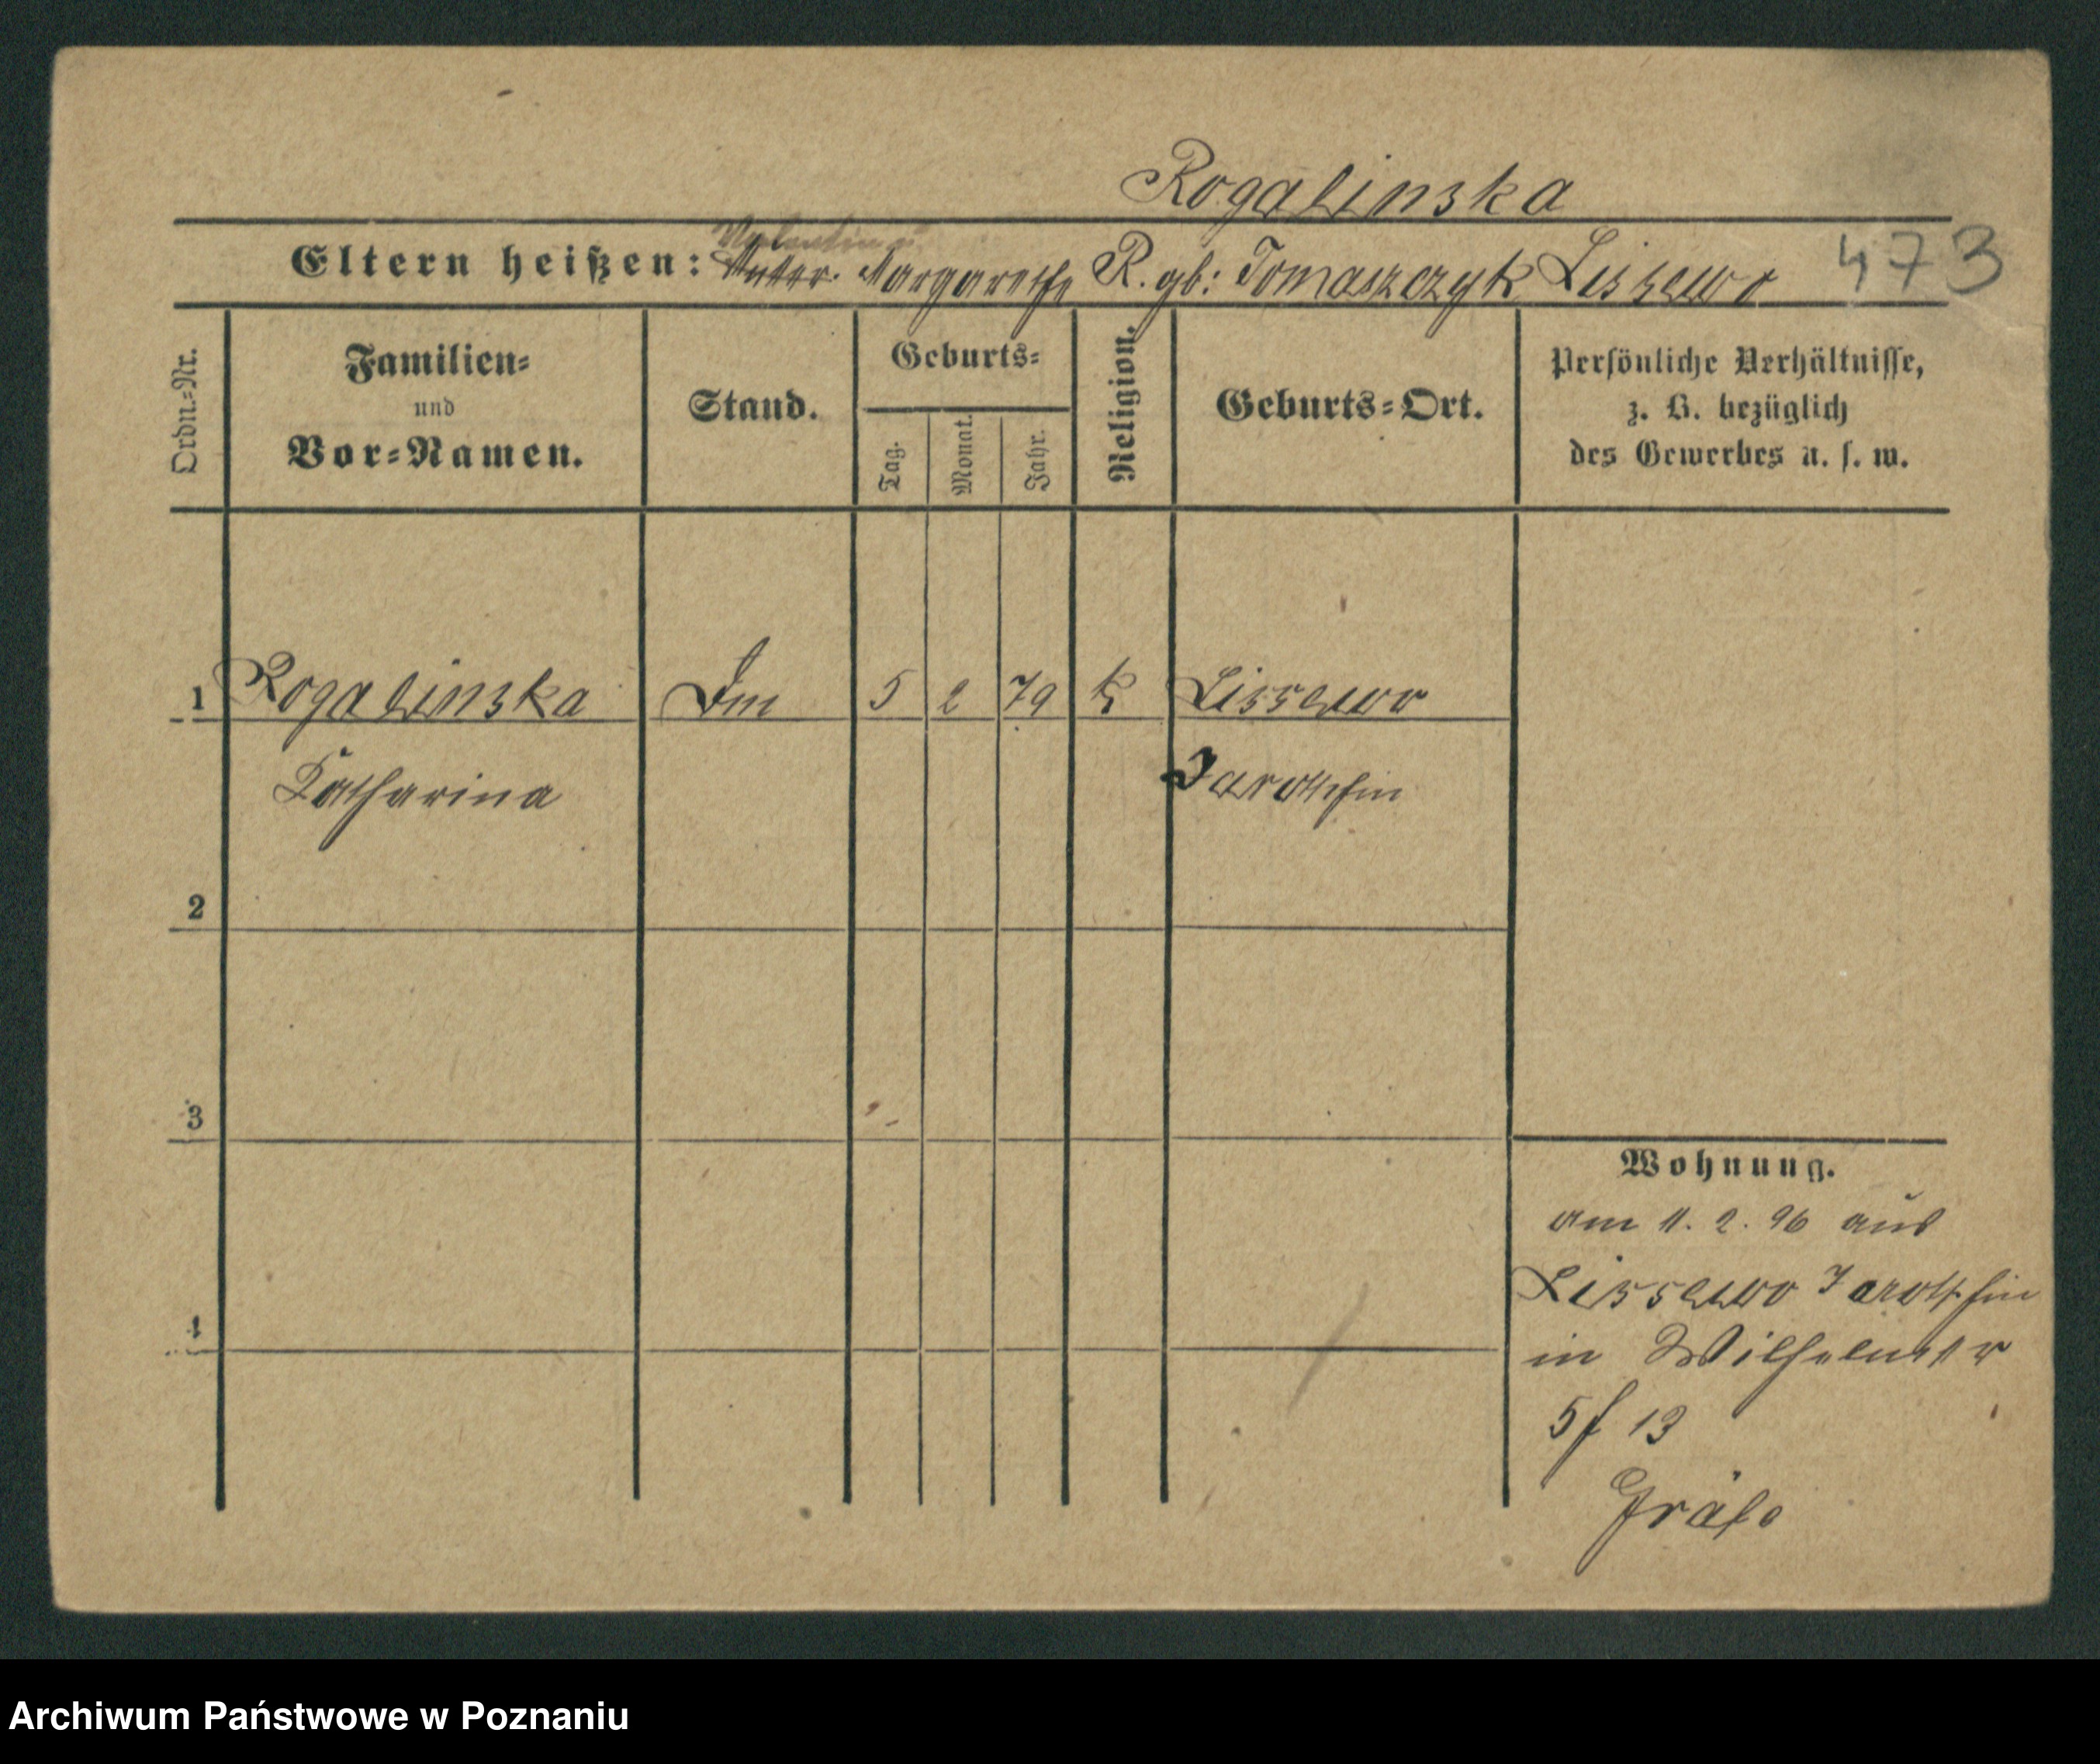 Rogalinska
Eltern heißen: Valentin u. Mutter. Margarethe R. gb: Tomaszczyk Lissewo 473
Ordn.-Nr.
Familien-
und
Vor-Namen.
Stand.
Geburts-
Tag.
Monat.
Jahr.
Religion.
Geburts-Ort.
Persönliche Verhältnisse,
z. B. bezüglich
des Gewerbes u. s. w.
1 Rogalinska 5 2 79 k Lissewo
Katharina Jarotschin
2
3
Wohnung.
am 11. 2. 96 aus
Lissewo Jarotschin
4
in Wilhelmstr
5 f 13
Archiwum Państwowe w Poznaniu